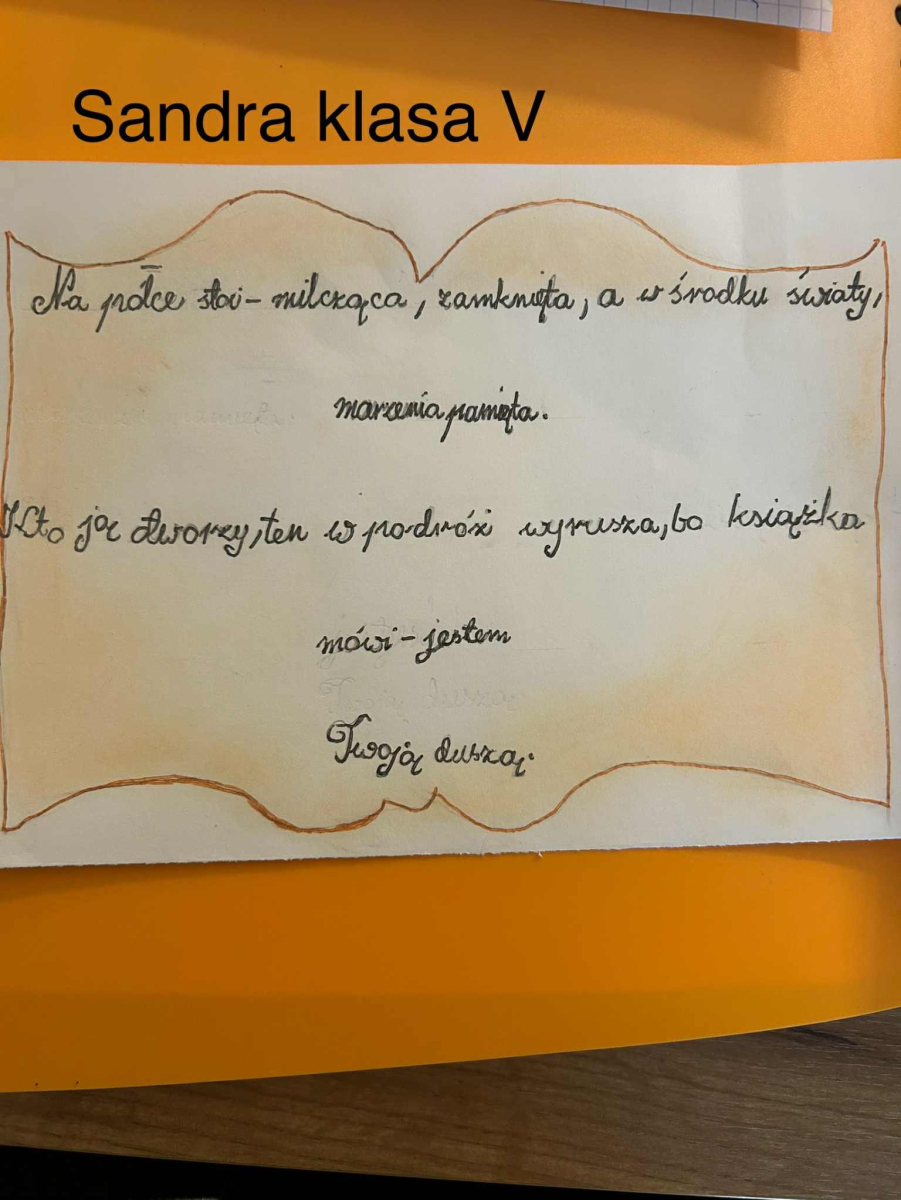 Sandra klasa V
Na półce stoi - milcząca, zamknięta, a w środku światy,
marzenia pamięta.
Kto ją otworzy, ten w podróż wyrusza, bo książka
mówi - jestem
Twoją duszą.